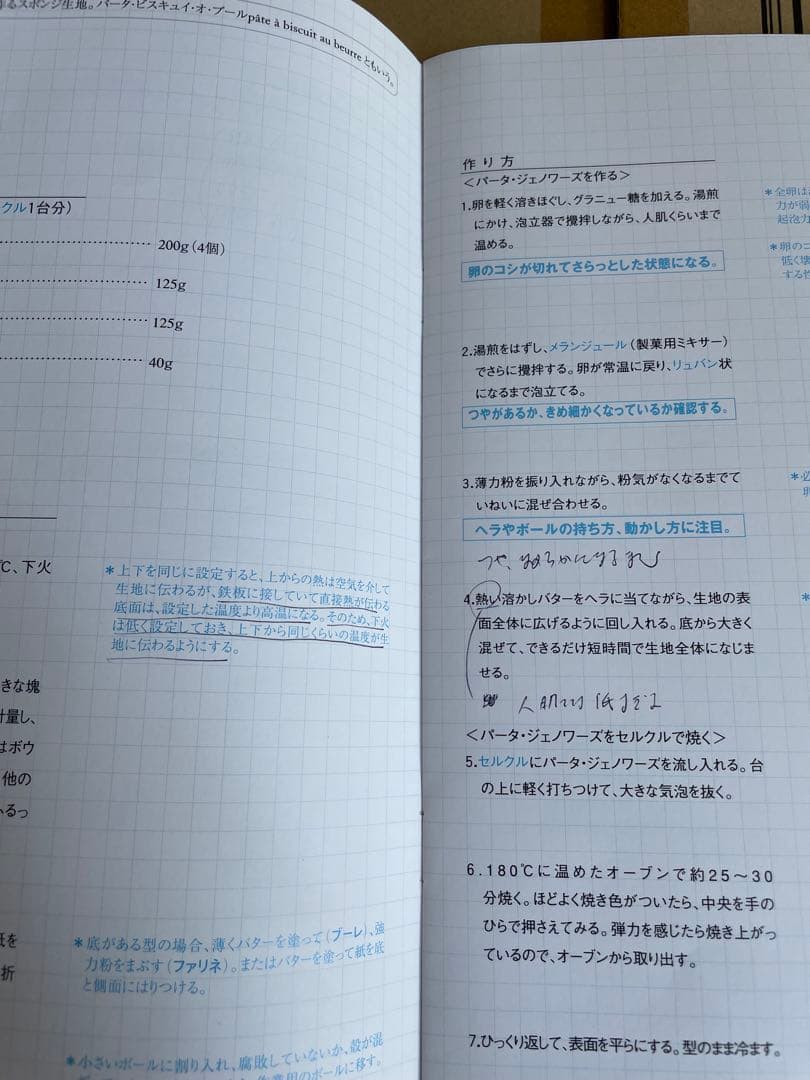 るスポンジ生地。パータ・ビスキュイ・オ・ブールpâte à biscuit au beurre ともいう。
クル1台分）
200g（4個）
125g
125g
40g
℃、下火
＊上下を同じに設定すると、上からの熱は空気を介して
生地に伝わるが、鉄板に接していて直接熱が伝わる
底面は、設定した温度より高温になる。そのため、下火
は低く設定しておき、上下から同じくらいの温度が生
地に伝わるようにする。
きな塊
計量し、
はボウ
他の
ふるっ
紙を
折
＊底がある型の場合、薄くバターを塗って（ブーレ）、強
力粉をまぶす（ファリネ）。またはバターを塗って紙を底
と側面にはりつける。
＊小さいボールに割り入れ、腐敗していないか、殻が混
作業用のボールに移す。
作り方
＜パータ・ジェノワーズを作る＞
1.卵を軽く溶きほぐし、グラニュー糖を加える。湯煎
にかけ、泡立器で攪拌しながら、人肌くらいまで
温める。
卵のコシが切れてさらっとした状態になる。
2.湯煎をはずし、メランジュール（製菓用ミキサー）
でさらに攪拌する。卵が常温に戻り、リュバン状
になるまで泡立てる。
つやがあるか、きめ細かくなっているか確認する。
3.薄力粉を振り入れながら、粉気がなくなるまでて
いねいに混ぜ合わせる。
ヘラやボールの持ち方、動かし方に注目。
つや、
4.熱い溶かしバターをヘラに当てながら、生地の表
面全体に広げるように回し入れる。底から大きく
混ぜて、できるだけ短時間で生地全体になじま
せる。
人肌
＜パータ・ジェノワーズをセルクルで焼く＞
5.セルクルにパータ・ジェノワーズを流し入れる。台
の上に軽く打ちつけて、大きな気泡を抜く。
6.180℃に温めたオーブンで約25〜30
分焼く。ほどよく焼き色がついたら、中央を手の
ひらで押さえてみる。弾力を感じたら焼き上がっ
ているので、オーブンから取り出す。
7.ひっくり返して、表面を平らにする。型のまま冷ます。
＊全卵は
力が弱
起泡力
＊卵のコ
低く壊
する性
＊必